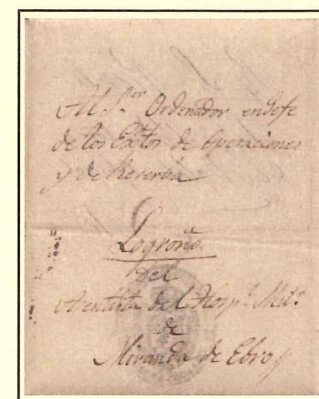 Al S.or Ordenador en Jefe
de los Extos de Operaciones
y de Reserva
Logroño.
Del
del Hosp.l Mil.r
de
Miranda de Ebro